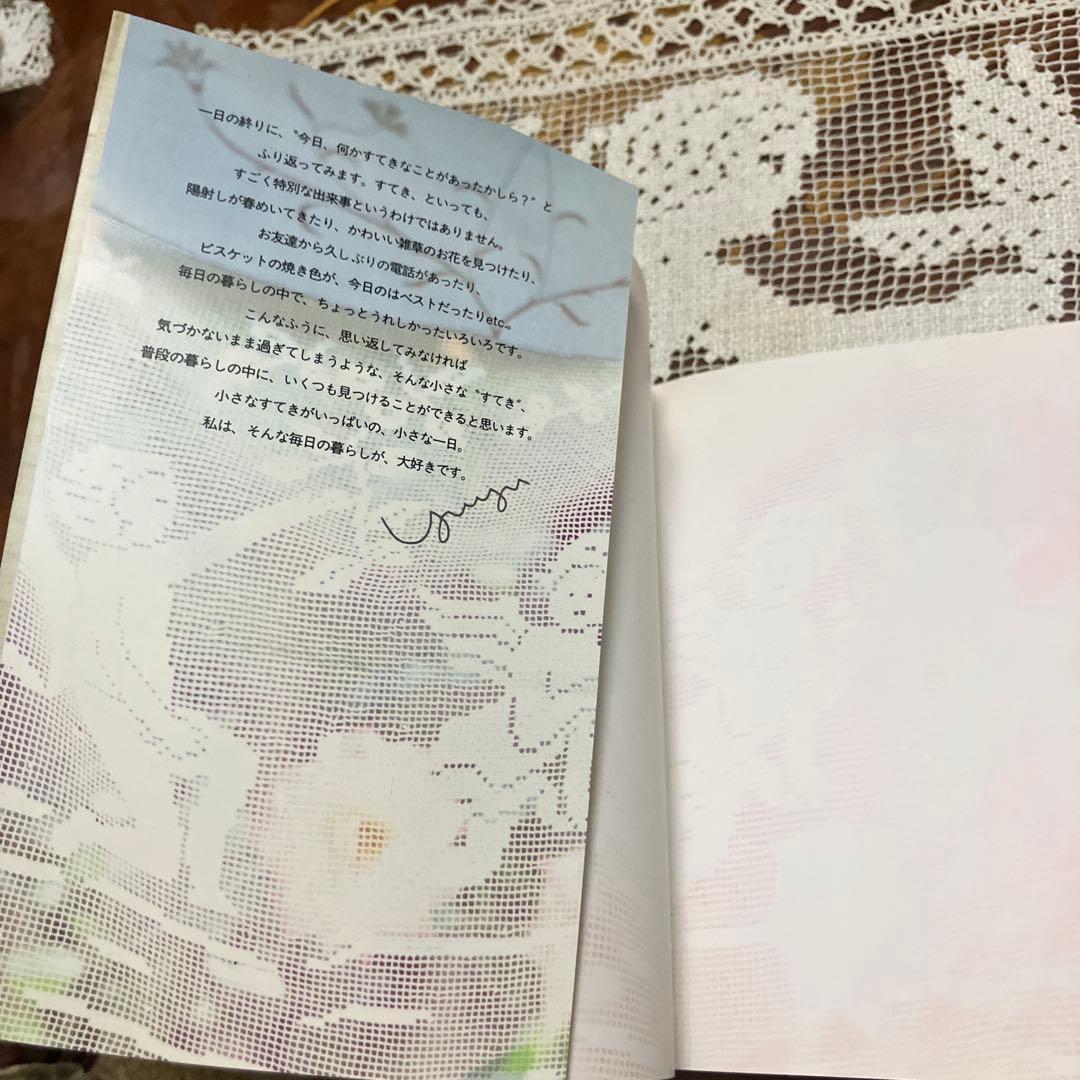 一日の終りに、〝今日、何かすてきなことがあったかしら？〟と
ふり返ってみます。すてき、といっても、
すごく特別な出来事というわけではありません。
陽射しが春めいてきたり、かわいい雑草のお花を見つけたり、
お友達から久しぶりの電話があったり、
ビスケットの焼き色が、今日のはベストだったりetc。
毎日の暮らしの中で、ちょっとうれしかったいろいろです。
こんなふうに、思い返してみなければ
気づかないまま過ぎてしまうような、そんな小さな〝すてき〟、
普段の暮らしの中に、いくつも見つけることができると思います。
小さなすてきがいっぱいの、小さな一日。
私は、そんな毎日の暮らしが、大好きです。